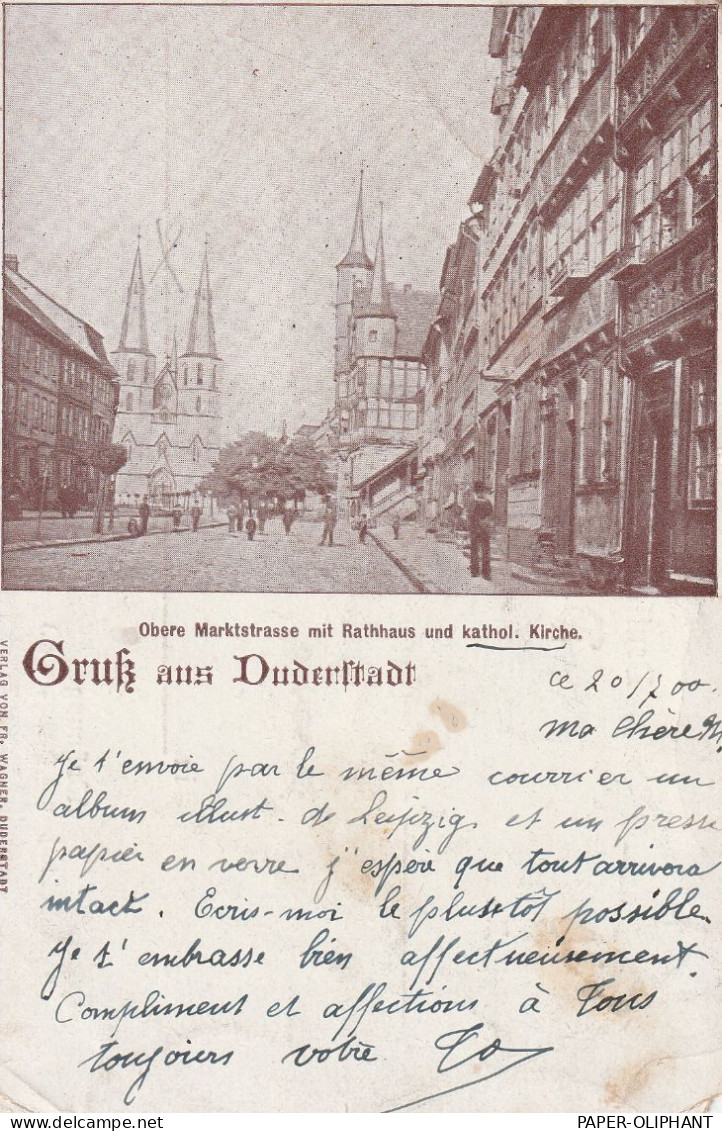 Obere Marktstrasse mit Rathhaus und kathol. Kirche.
Gruß aus Duderstadt
VERLAG VON FR. WAGNER, DUDERSTADT
ce 20/7 00.
ma chère
Je t'envoie par le même courrier un
album illust. de Leipzig et un presse
papier en verre j'espère que tout arrivera
intact. Ecris-moi le plustôt possible.
Je t'embrasse bien affectueusement.
Compliment et affections à Tous
toujours votre
PAPER-OLIPHANT